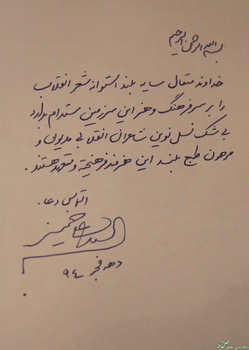 بسم الله الرحمن الرحیم
خداوند متعال سایه بلند استوانه شعر انقلاب
را بر سر فرهنگ و هنر این سرزمین مستدام بدارد
بی شک نسل نوین شاعران انقلابی مدیون و
مرهون طبع بلند این هنرمند فرهیخته و متعهد هستند.
التماس دعا.
دهه فجر ۹۴